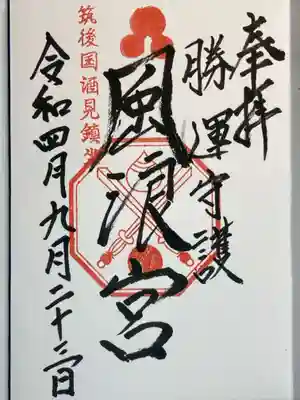 奉拝
勝運守護
風浪宮
筑後国酒見鎮座
令和四月九月二十三日